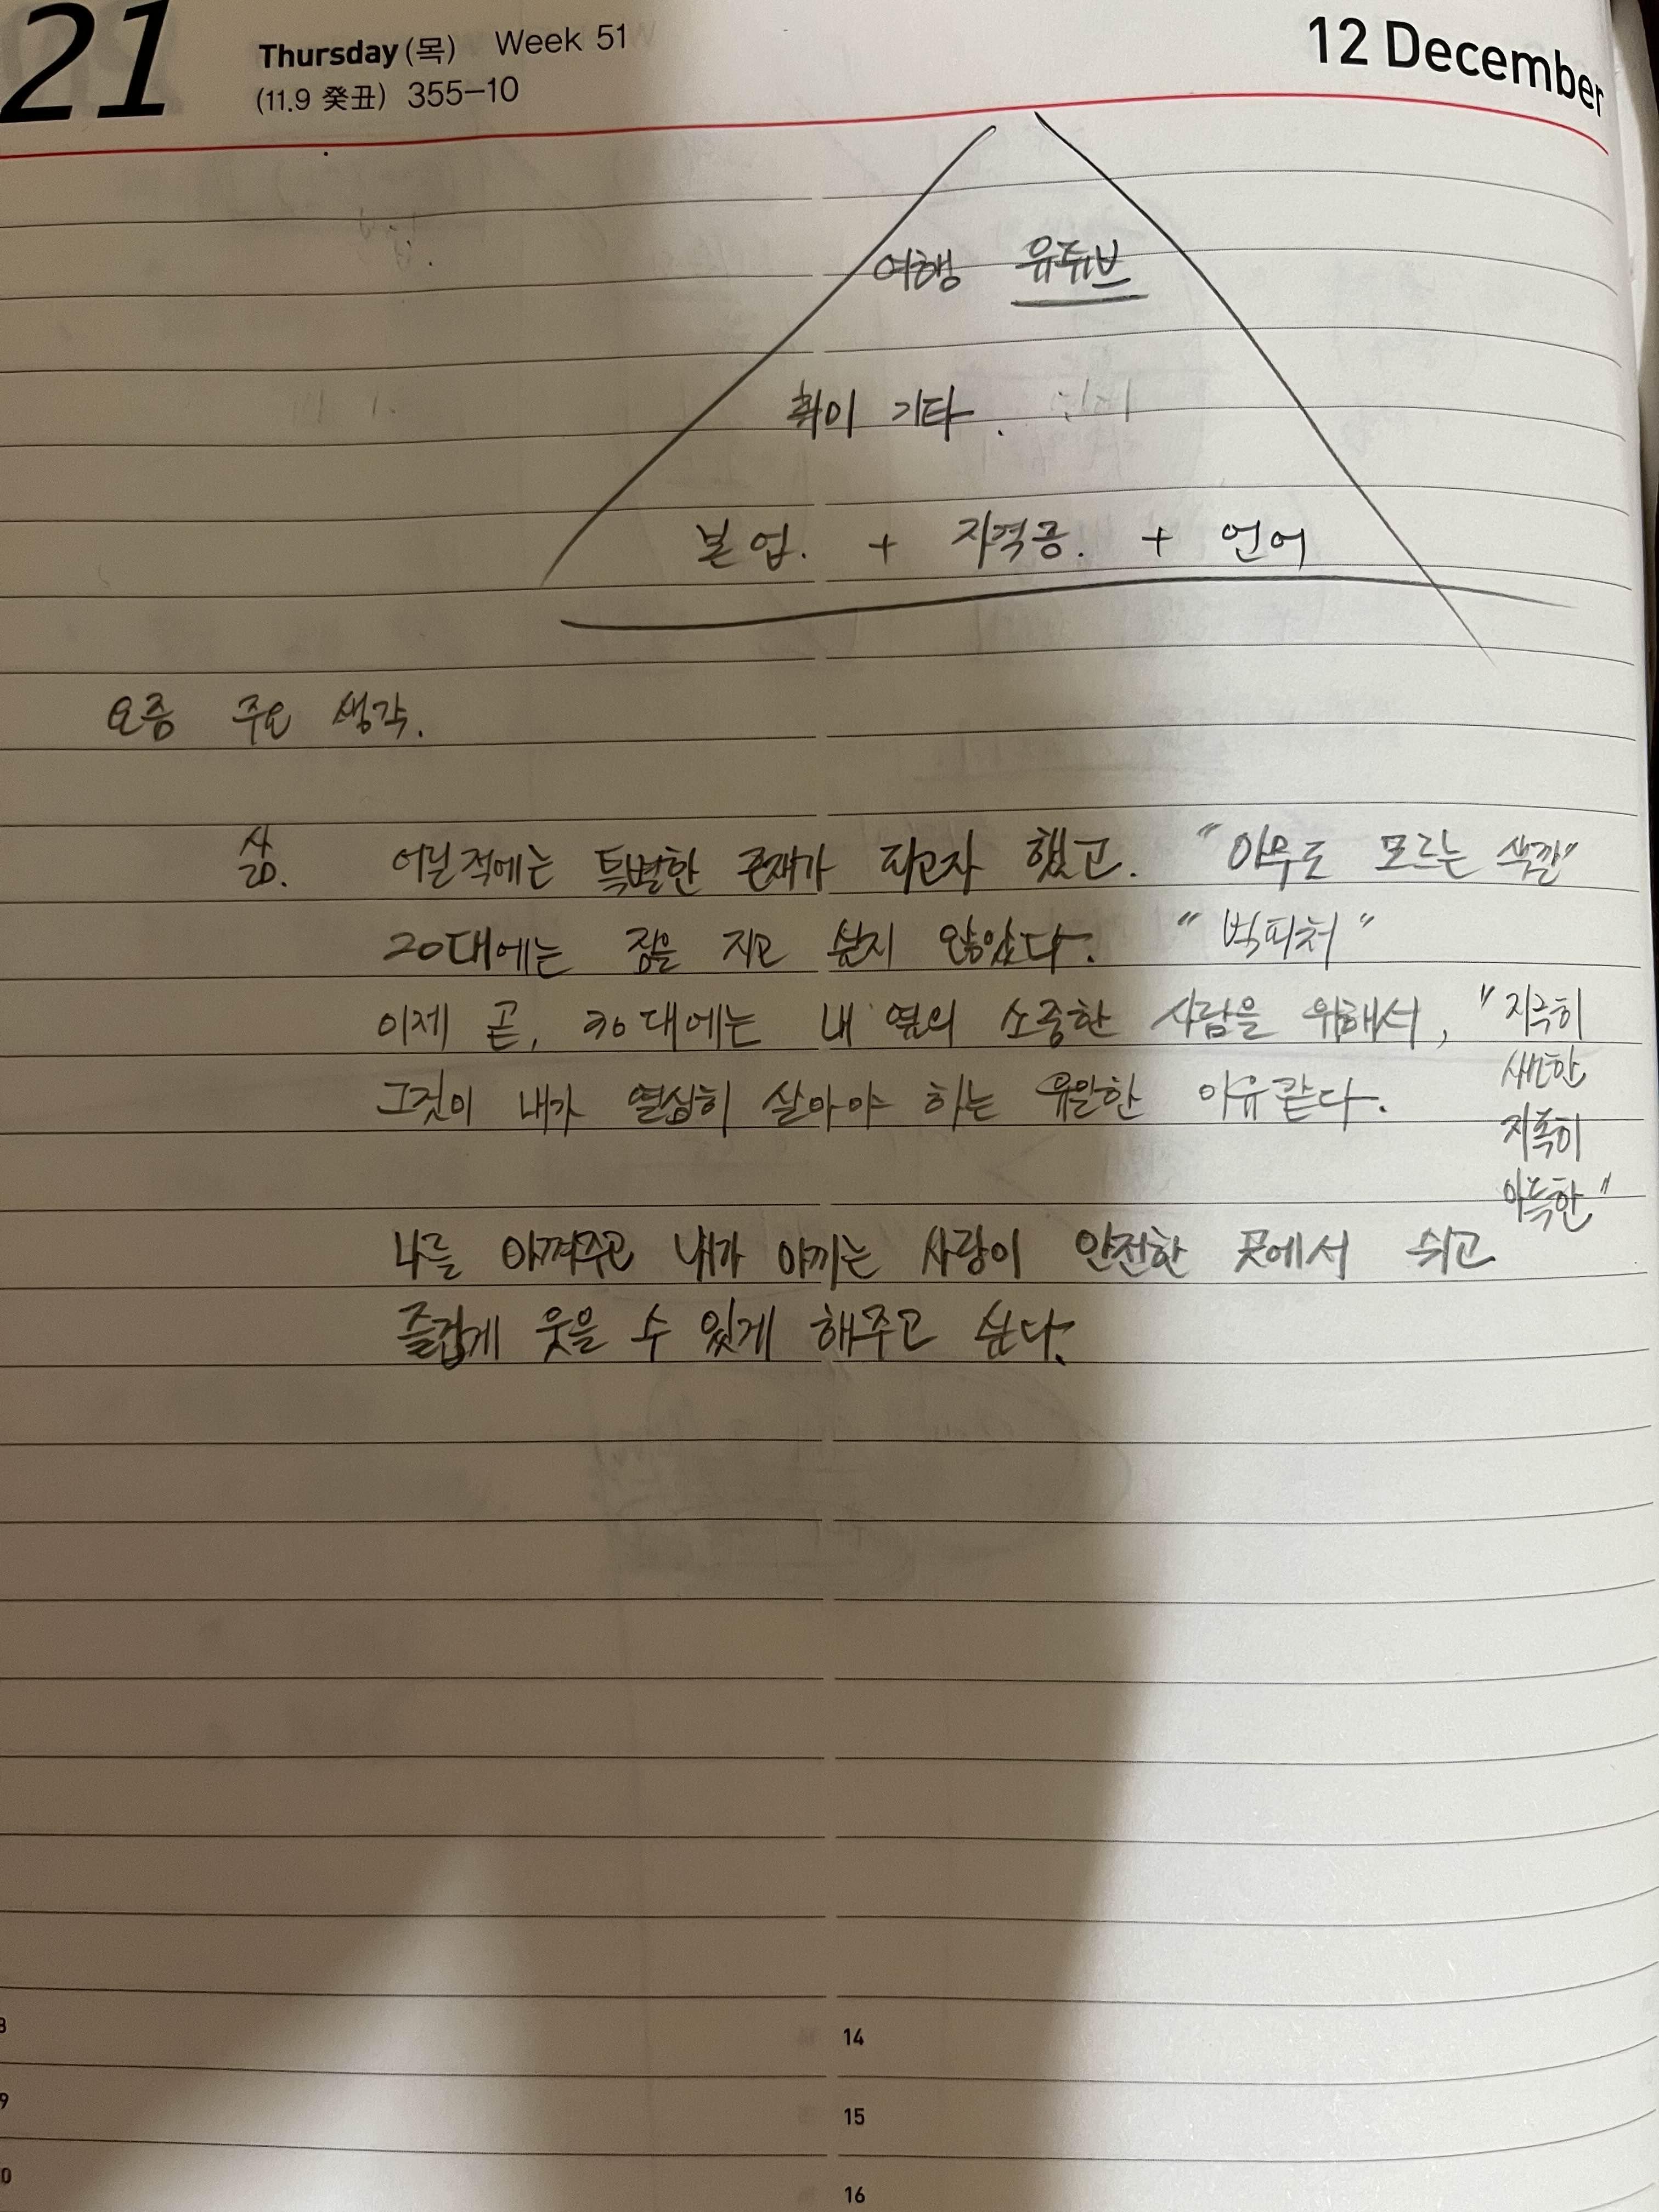 21
Thursday (목) Week 51
(11.9 癸丑) 355-10
12 December
여행 유튜브
취미 기타.
본업. + 자격증. + 언어
요즘 주요 생각.
삶. 어릴적에는 특별한 존재가 되고자 했고. "아무도 모르는 색깔"
20대에는 짐을 지고 싶지 않았다. "빅피처"
이제 곧, 30대에는 내 옆의 소중한 사람을 위해서, "지극히
그것이 내가 열심히 살아야 하는 유일한 이유같다.
지독히
아득한"
나를 아껴주고 내가 아끼는 사람이 안전한 곳에서 쉬고
즐겁게 웃을 수 있게 해주고 싶다.
8
14
9
15
0
16